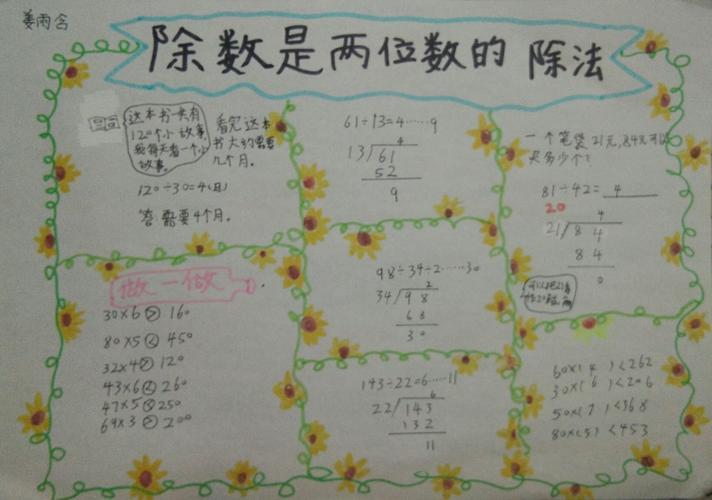 姜雨含
除数是两位数的 除法
这本书一共有
120个小故事,
我每天看一个小
故事。
看完这本
书大约需要
几个月。
120÷30=4(月)
答:需要4个月。
61÷13=4……9
4
13 61
52
9
一个笔袋21元,84元可以
买多少个?
81÷42= 4
20
4
21 84
84
0
做一做
30×6>160
80×5<450
32×4>120
43×6<260
47×5<250
69×3>200
98÷34÷2……30
2
34 98
68
30
143÷22=6……11
6
22 143
132
11
60×(4)<262
30×(6)<206
50×(7)<368
80×(5)<453